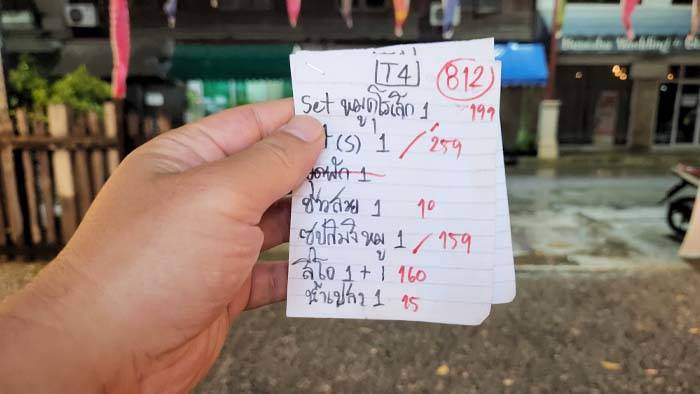 T4
812
Set หมูดูโรเล็ก 1 199
(S) 1 259
ชุดผัก 1
ข้าวสวย 1 10
ซุปกิมจิหมู 1 159
ลีโอ 1 + 1 160
น้ำเปล่า 1 15